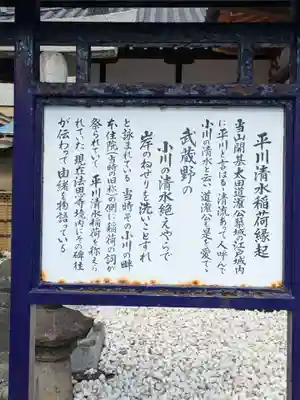 平川清水稲荷縁起
当山開基太田道灌公築城江戸城内
に平川と言はるゝ清流あって人呼んで
小川の清水と云い道灌公も是を愛でゝ
武蔵野の
小川の清水絶えやらで
岸のねぜりを洗いこそすれ
と詠まれている 当時その小川の畔
本住院(当時の旧称)の側に稲荷の祠が
祭られていて平川清水稲荷を称えら
れていた現在法恩寺境内にその碑柱
が伝わって由緒を物語っている